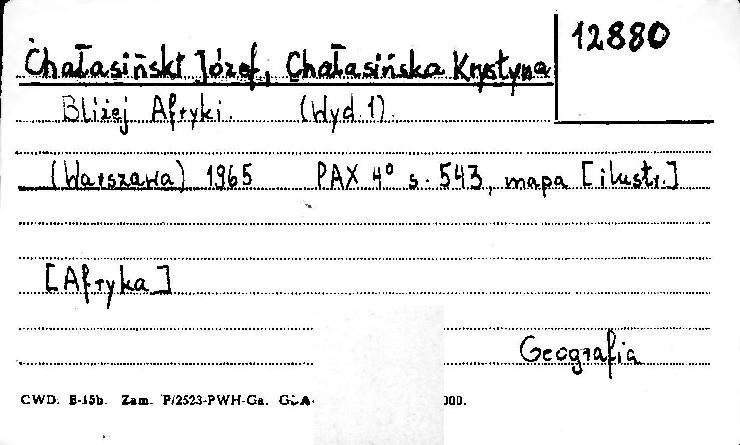 12880
Chałasiński Józef, Chałasińska Krystyna
Bliżej Afryki. (Wyd. 1).
(Warszawa) 1965 PAX 4° s. 543, mapa [ilustr.]
[Afryka]
Geografia
CWD. B-15b. Zam. P/2523-PWH-Ga. 000.